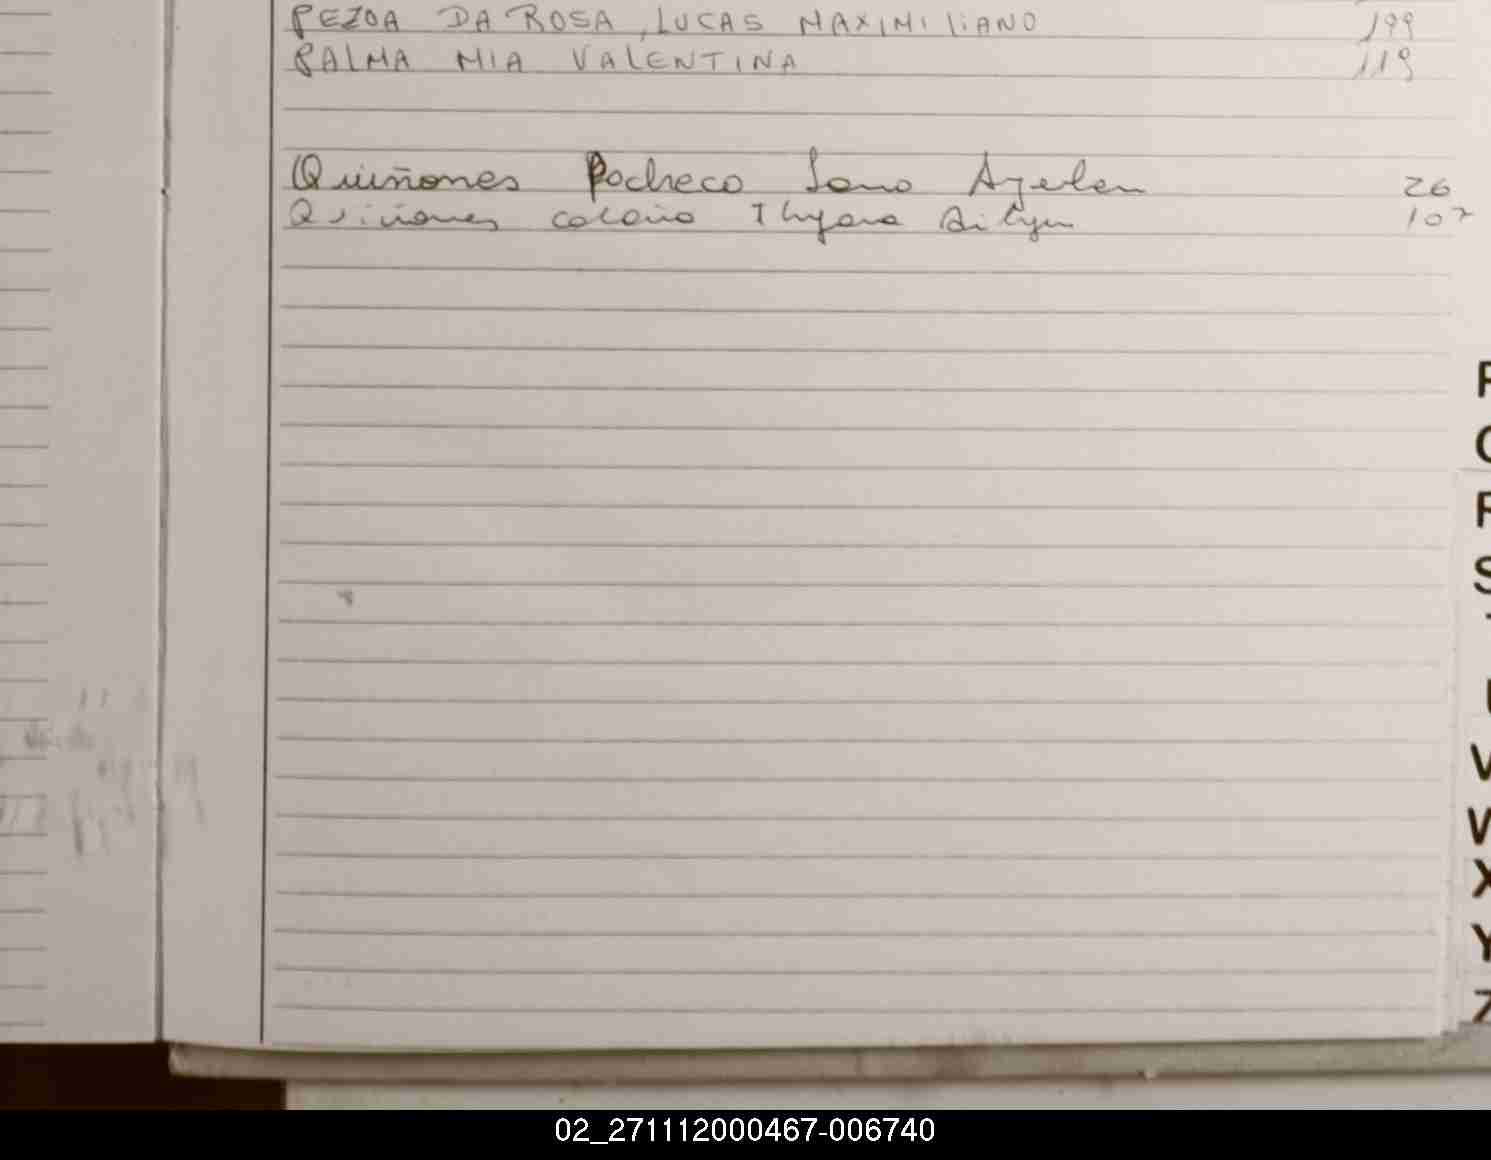 PEZOA DA ROSA, LUCAS MAXIMILIANO 199
PALMA MIA VALENTINA 119
Quiñones Pacheco Ayelen 26
Quiñones Thyara 107
P
Q
R
S
T
U
V
W
X
Y
Z
02_271112000467-006740